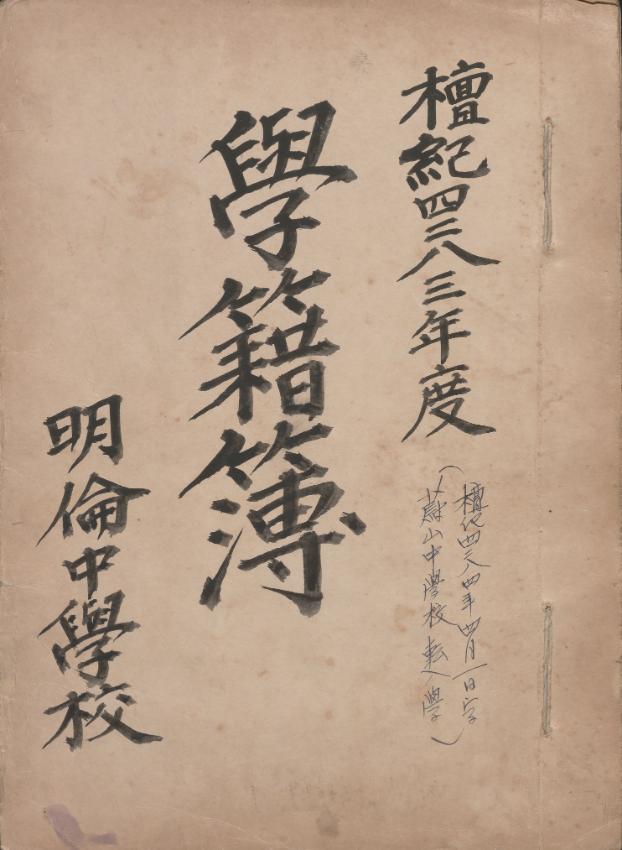 檀紀四二八三年度
(檀紀四二八四年四月一日字
蔚山中學校転入學)
學籍簿
明倫中學校